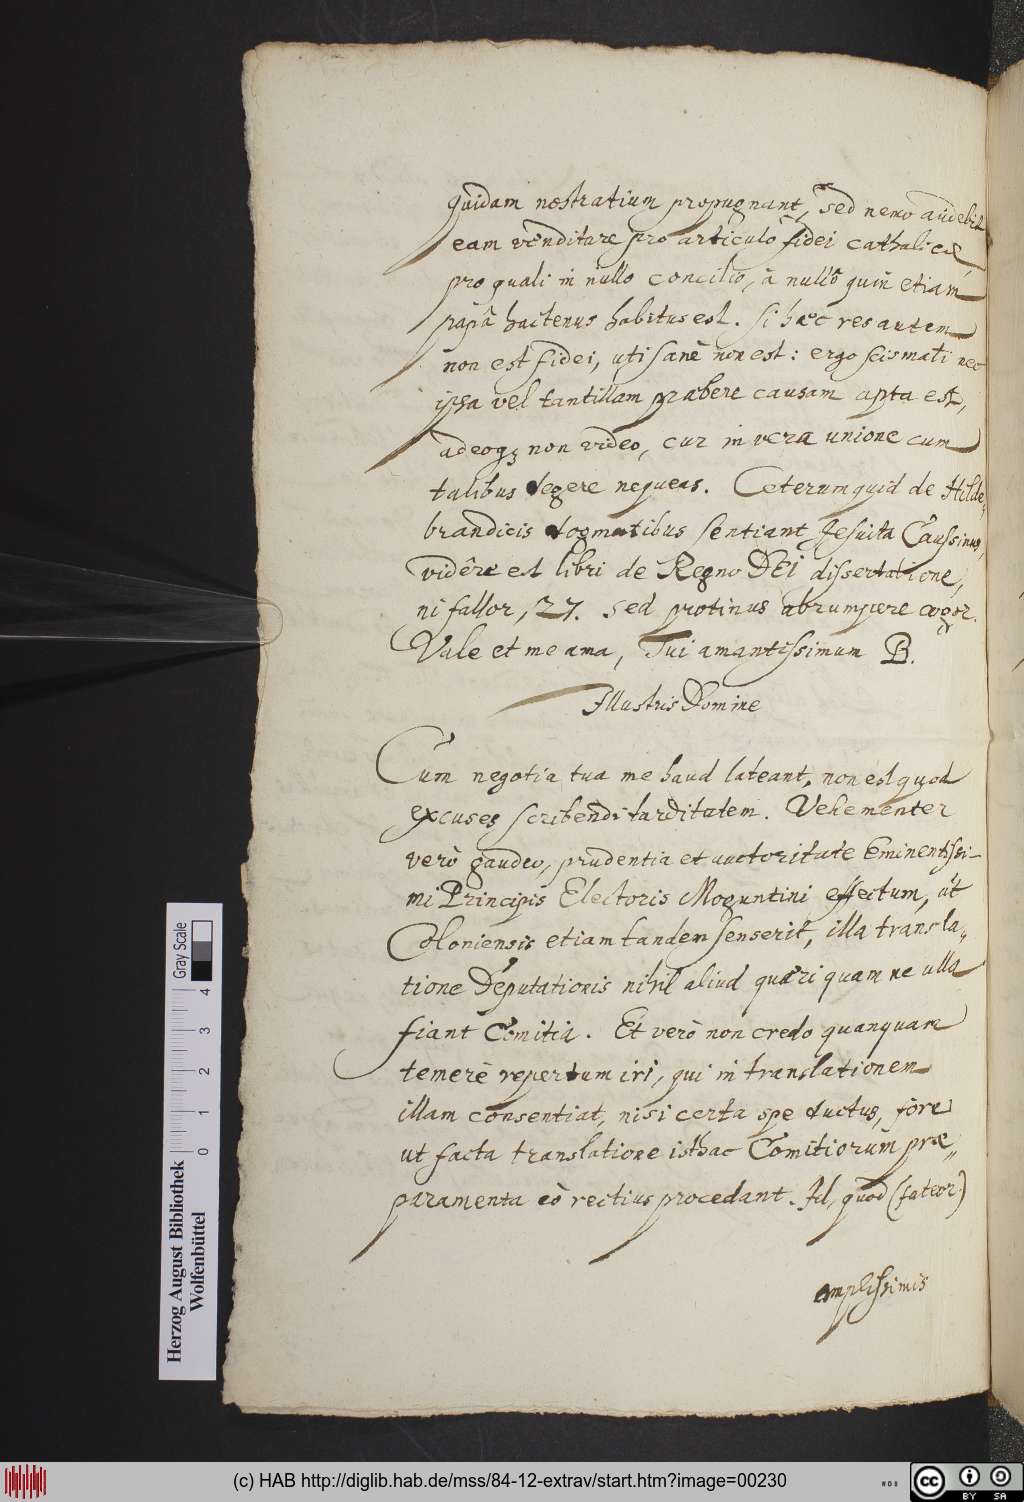 quidam nostratium propugnant, sed nemo audebit
eam venditare pro articulo fidei catholicæ,
pro quali in nullo concilio, à nullô quin etiam
papâ hactenus habitus est. Si hæc res autem
non est fidei, uti sanè non est: ergo scismati nec
ipsa vel tantillam præbere causam apta est,
adeoq₃ non video, cur in vera unione cum
talibus degere nequeas. Ceterum quid de Hilde„
brandicis dogmatibus sentiant Jesuita Caussinus,
vidêre est libri de Regno DEI dissertatione,
ni fallor, 27. sed protinus abrumpere cogor.
Vale et me ama, Tui amantissimum B.
Illustris Domine
Cum negotia tua me haud lateant, non est quod
excuses scribendi tarditatem. Vehementer
verò gaudeo, prudentia et auctoritate Eminentissi-
mi Principis Electoris Moguntini effectum, ut
Coloniensis etiam tandem senserit, illa transla„
tione Deputationis nihil aliud quæri quam ne ulla
fiant Comitia. Et verò non credo quanquam
temerè repertum iri, qui in translationem
illam consentiat, nisi certa spe ductus, fore
ut facta translatione isthac Comitiorum præ„
paramenta eò rectius procedant. Id, quod (fateor)
amplissimis
Herzog August Bibliothek
Wolfenbüttel
0 1 2 3 4
Gray Scale
(c) HAB http://diglib.hab.de/mss/84-12-extrav/start.htm?image=00230
WDB
cc
BY SA